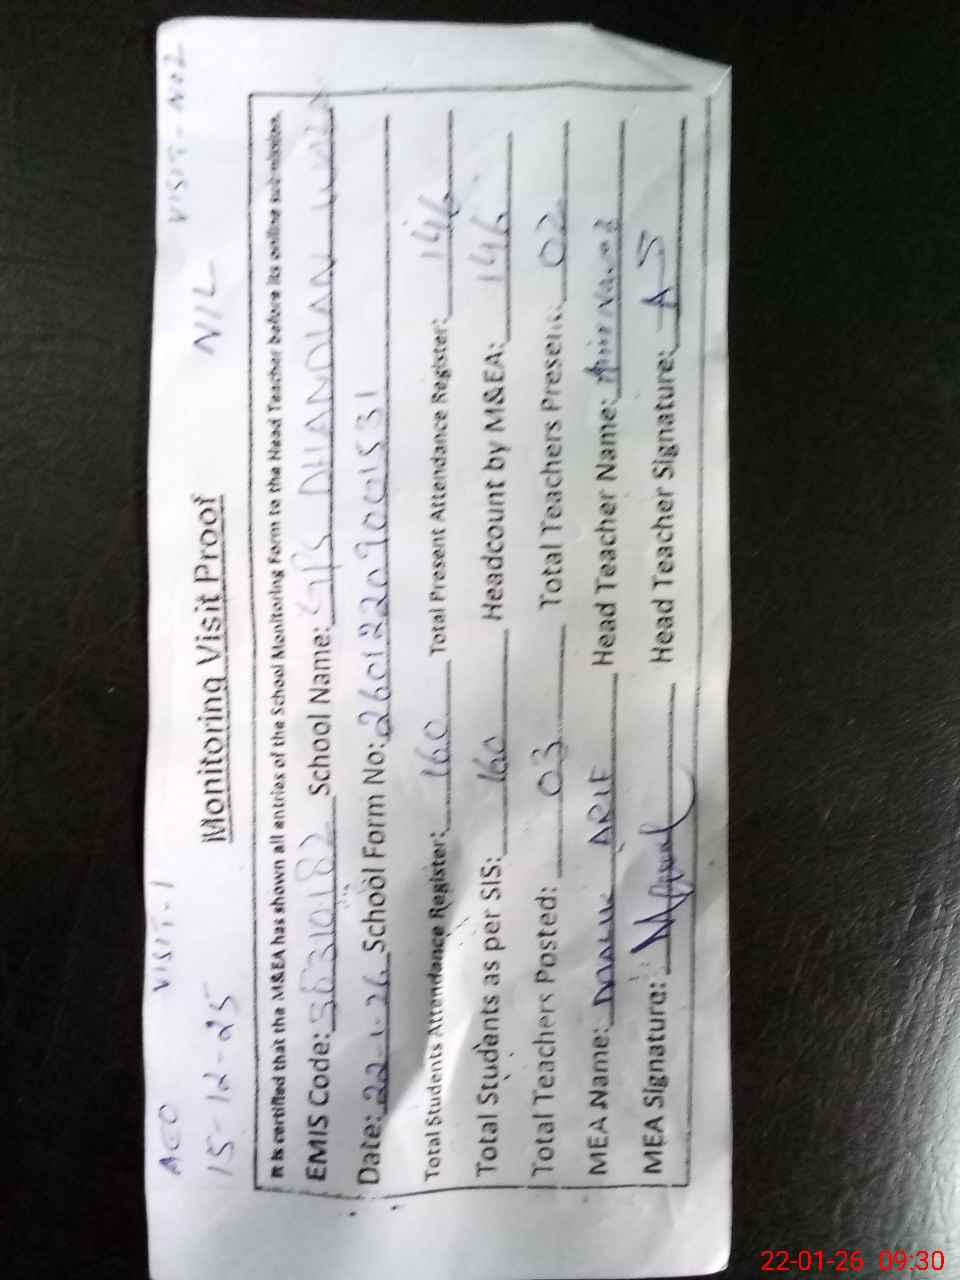 AEO VISIT-1 VISIT-No2
15-12-25 NIL
Monitoring Visit Proof
It is certified that the M&EA has shown all entries of the School Monitoring Form to the Head Teacher before its online submission.
EMIS Code: 36310182 School Name: GPS DHANDIAN
Date: 22-1-26 School Form No: 26012209001531
Total Students Attendance Register: 160 Total Present Attendance Register: 146
Total Students as per SIS: 160 Headcount by M&EA: 146
Total Teachers Posted: 03 Total Teachers Present: 02
MEA Name: ARIF Head Teacher Name:
MEA Signature: Head Teacher Signature: AS
22-01-26 09:30